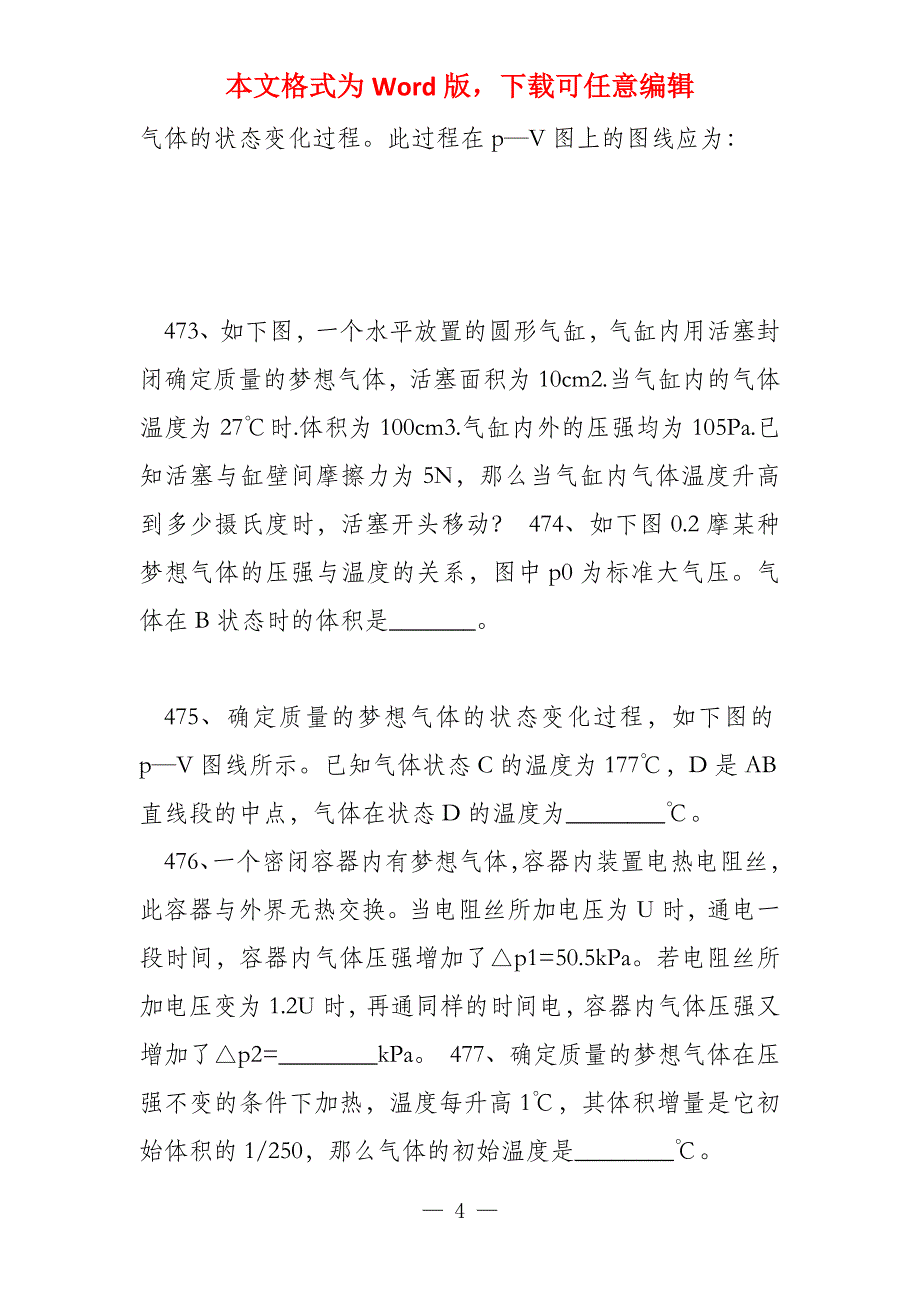 本文格式为 Word 版，下载可任意编辑
气体的状态变化过程。此过程在 p—V 图上的图线应为：
473、如下图，一个水平放置的圆形气缸，气缸内用活塞封
闭确定质量的梦想气体，活塞面积为 10cm2.当气缸内的气体
温度为 27℃时.体积为 100cm3.气缸内外的压强均为 105Pa.已
知活塞与缸壁间摩擦力为 5N，那么当气缸内气体温度升高
到多少摄氏度时，活塞开头移动？ 474、如下图 0.2 摩某种
梦想气体的压强与温度的关系，图中 p0 为标准大气压。气
体在 B 状态时的体积是_______。
475、确定质量的梦想气体的状态变化过程，如下图的
p—V 图线所示。已知气体状态 C 的温度为 177℃，D 是 AB
直线段的中点，气体在状态 D 的温度为________℃。
476、一个密闭容器内有梦想气体，容器内装置电热电阻丝，
此容器与外界无热交换。当电阻丝所加电压为 U 时，通电一
段时间，容器内气体压强增加了△p1=50.5kPa。若电阻丝所
加电压变为 1.2U 时，再通同样的时间电，容器内气体压强又
增加了△p2=________kPa。 477、确定质量的梦想气体在压
强不变的条件下加热，温度每升高 1℃，其体积增量是它初
始体积的 1/250，那么气体的初始温度是________℃。
— 4 —